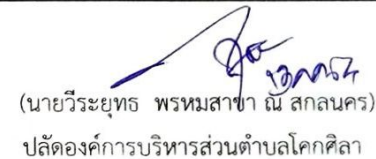 (นายวีระยุทธ พรหมสาขา ณ สกลนคร)
ปลัดองค์การบริหารส่วนตำบลโคกศิลา